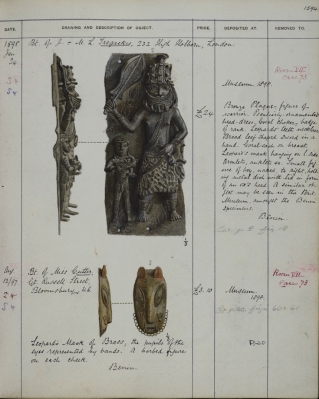 1294
DATE.
DRAWING AND DESCRIPTION OF OBJECT.
PRICE.
DEPOSITED AT.
REMOVED TO.
1898
Jan
24
Bt. of J. & M. L. Tregaskis, 232 High Holborn, London.
Room VII
Case 73
Museum 1898.
Bronze Plaque - figure of
warrior. Peculiarly ornamented
head-dress, Coral choker, badge
of rank. Leopard's teeth necklace.
Broad leaf-shaped sword in r.
hand. on breast.
Leopard's mask hanging on l. side.
Armlets, anklets &c. Small
of boy, naked to right,
metal dish with lid in form
of an ox's head. A similar
may be seen in the Brit.
Museum amongst the Benin
specimens.
Benin
Aug
13/97
Bt. of Miss Cutter,
Gt. Russell Street,
Bloomsbury
Museum
1898.
Room VII.
Case 73
Leopard's Mask of Brass, the pupils of the
eyes represented by bands. A barbed figure
on each cheek
Benin.